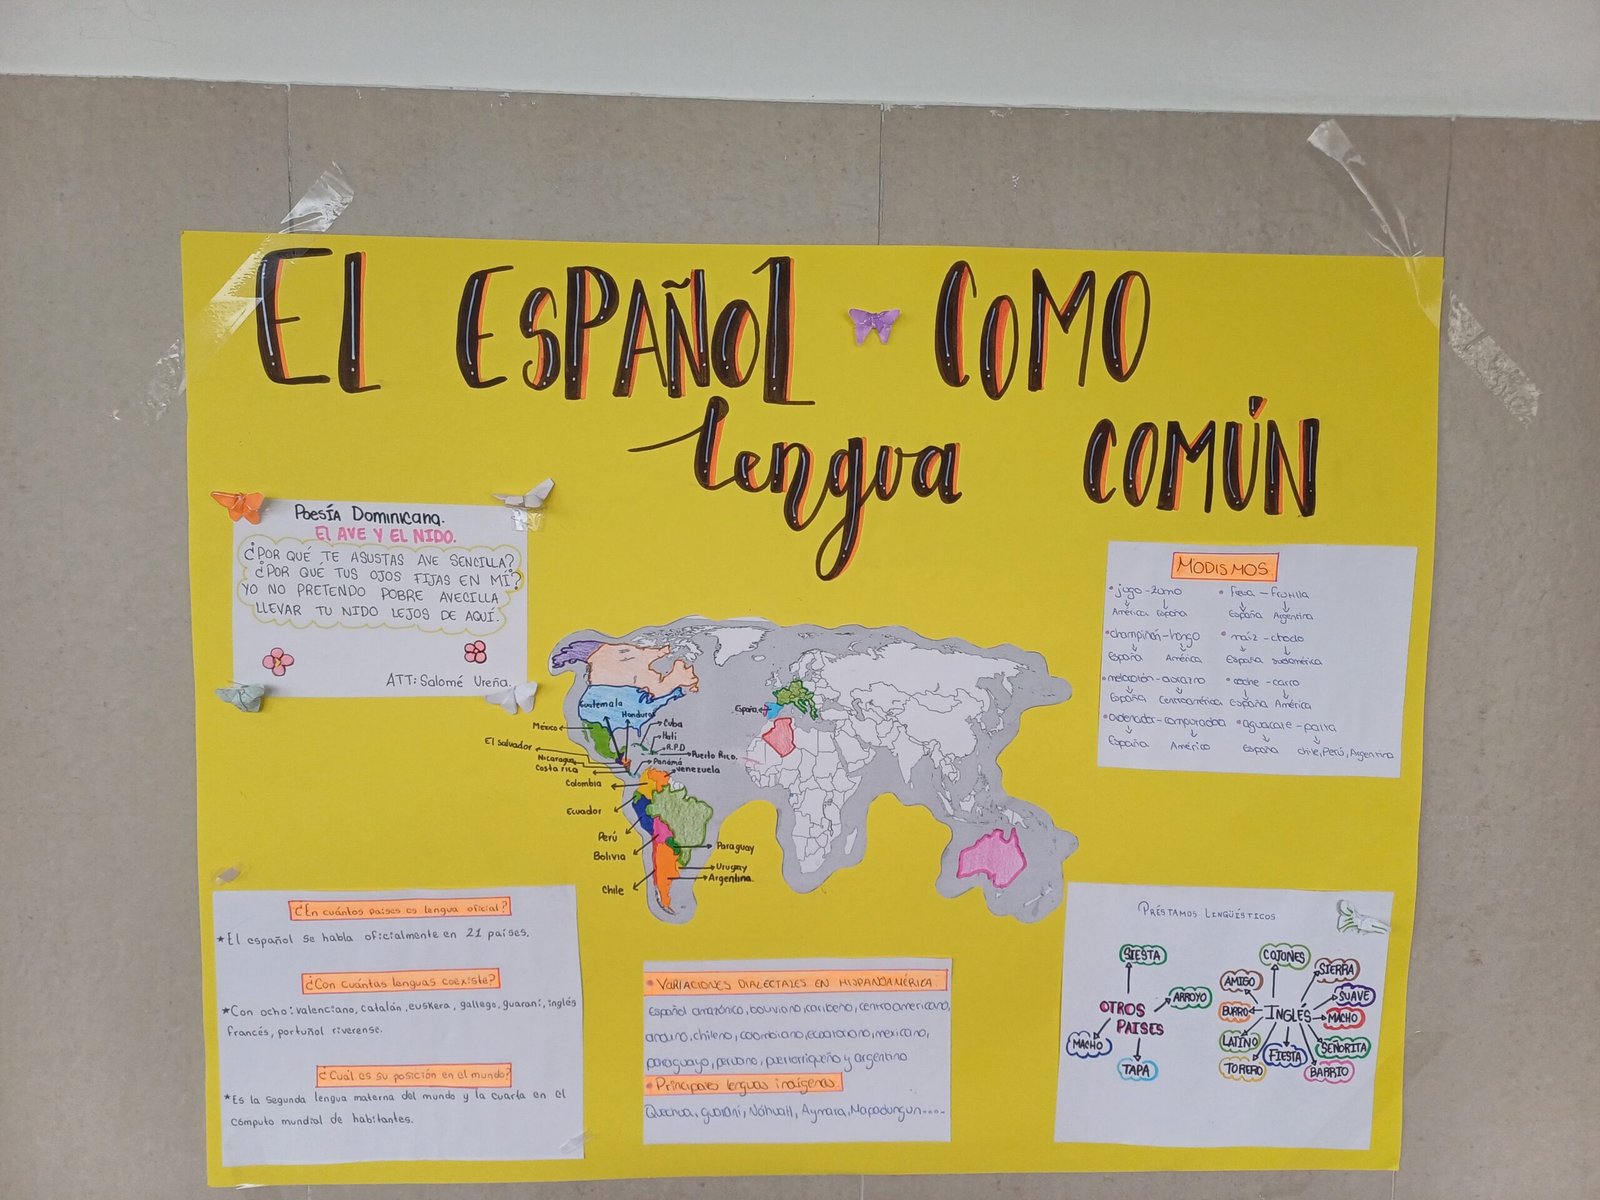 EL ESPAÑOL COMO
lengua COMÚN
Poesía Dominicana.
El AVE Y EL NIDO.
¿POR QUÉ TE ASUSTAS AVE SENCILLA?
¿POR QUÉ TUS OJOS FIJAS EN MÍ?
YO NO PRETENDO POBRE AVECILLA
LLEVAR TU NIDO LEJOS DE AQUÍ.
ATT: Salomé Ureña.
MODISMOS
• jugo - zumo
América España
• fresa - frutilla
España Argentina
• champiñón - hongo
España América
• maíz - choclo
España Sudamérica
España Centroamérica
• coche - carro
España América
• ordenador - computadora
España América
• aguacate - palta
España Chile, Perú, Argentina
Guatemala
Honduras
México
Cuba
Haití
R.P.D
Puerto Rico.
El salvador
Nicaragua
Costa rica
Panamá
Venezuela
Colombia
Ecuador
Perú
Bolivia
Chile
Paraguay
Uruguay
Argentina.
España
¿En cuántos países es lengua oficial?
* El español se habla oficialmente en 21 países.
¿Con cuántas lenguas coexiste?
* Con ocho: valenciano, catalán, euskera, gallego, guaraní, inglés
francés, portuñol riverense.
¿Cuál es su posición en el mundo?
* Es la segunda lengua materna del mundo y la cuarta en el
cómputo mundial de habitantes.
• VARIACIONES DIALECTALES EN HISPANOAMÉRICA
Español amazónico, boliviano, caribeño, centroamericano,
andino, chileno, colombiano, ecuatoriano, mexicano,
paraguayo, peruano, puertorriqueño y argentino
• Principales lenguas indígenas.
Quechua, guaraní, Náhuatl, Aymara, Mapadungun.....
PRÉSTAMOS LINGÜÍSTICOS
SIESTA
ARROYO
OTROS
PAISES
MACHO
TAPA
COJONES
AMIGO
SIERRA
SUAVE
BURRO
INGLÉS
MACHO
LATINO
FIESTA
SEÑORITA
TORERO
BARRIO